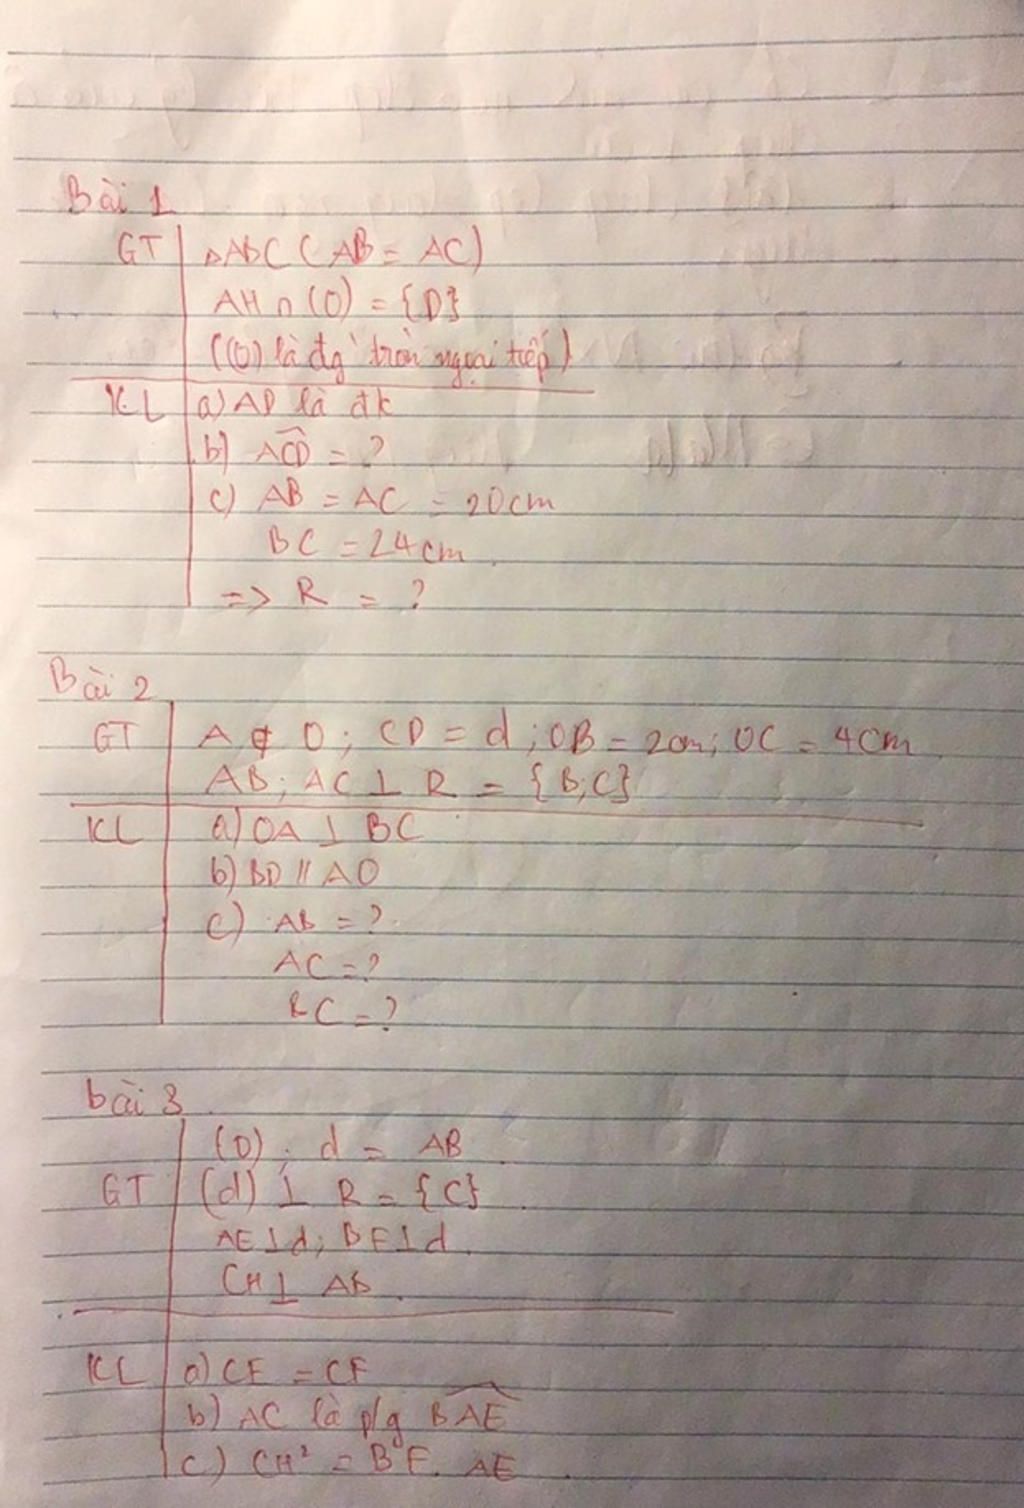 Bài 1
GT ΔABC (AB = AC)
AH ∩ (O) = {D}
((O) là đg tròn ngoại tiếp)
KL a) AD là đk
b) ACD = ?
c) AB = AC = 20cm
BC = 24cm.
=> R = ?
Bài 2
GT A ∉ O; CD = d; OB = 2cm; OC = 4cm
AB; AC ⊥ R = {B;C}
KL a) OA ⊥ BC
b) BD // AO
c) AB = ?
AC = ?
BC = ?
bài 3
(O); d = AB
GT (d) ⊥ R = {C}
AE ⊥ d; BF ⊥ d.
CH ⊥ AB.
KL a) CE = CF
b) AC là p/g BAE
c) CH² = BF. AE.